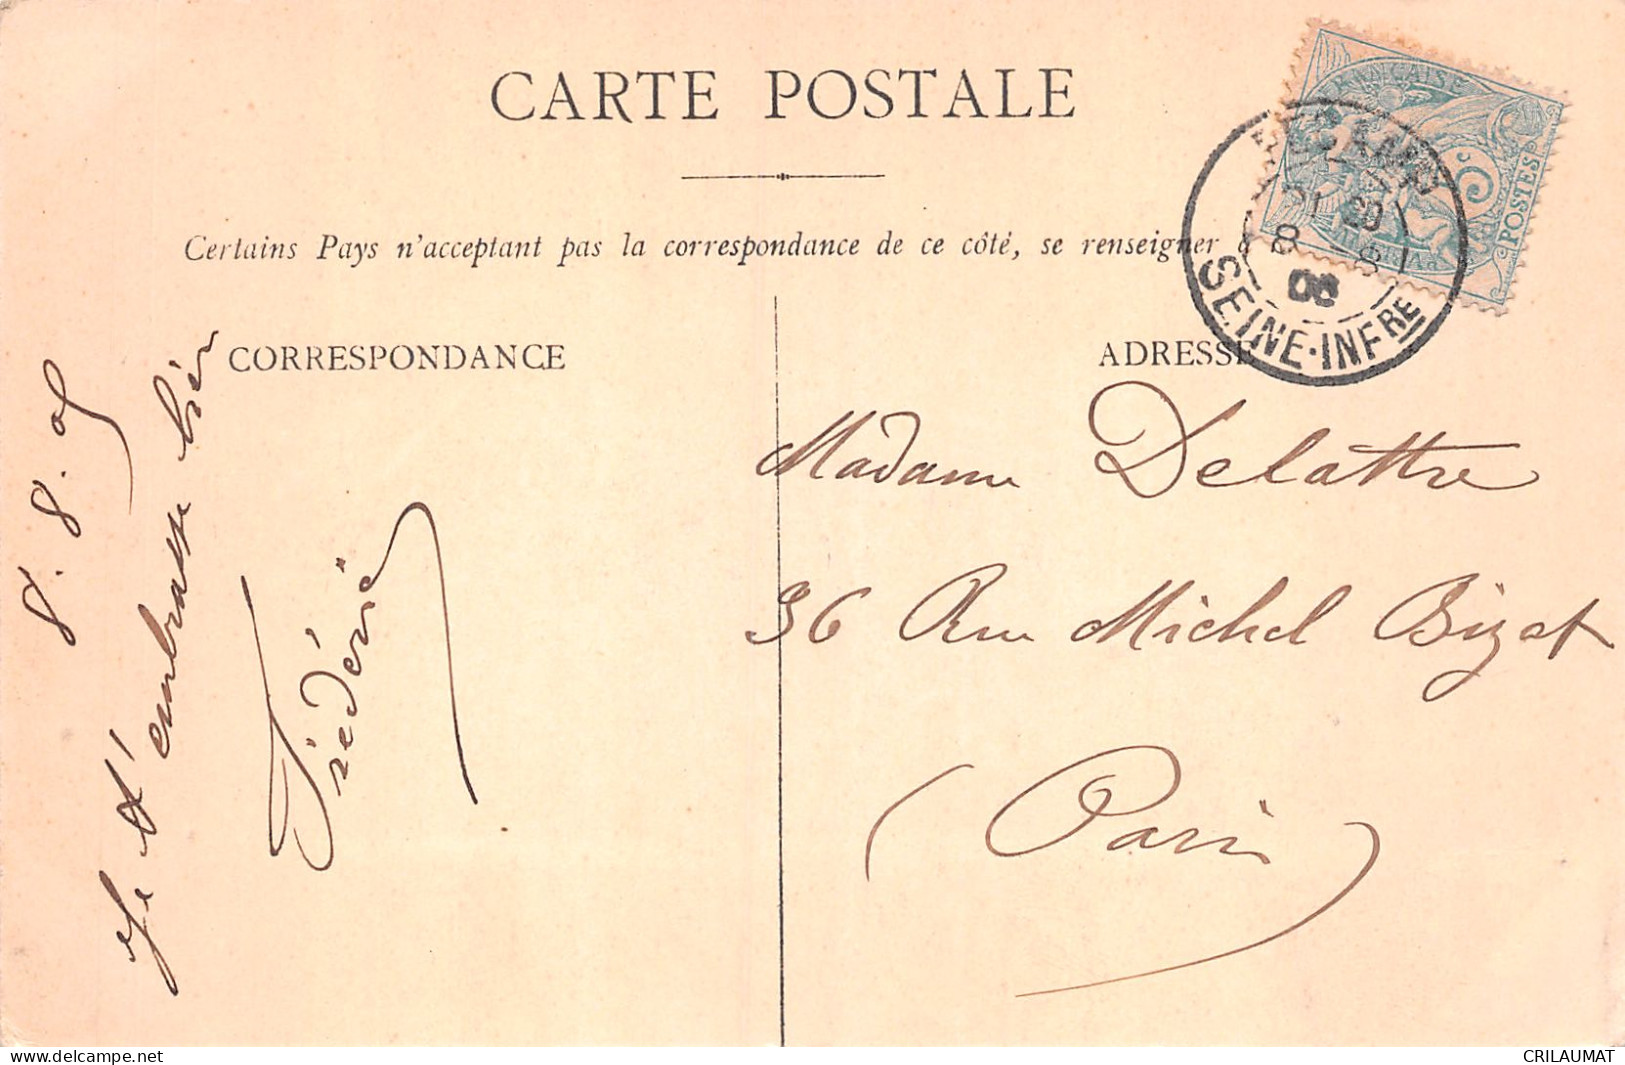 CARTE POSTALE
Certains Pays n'acceptant pas la correspondance de ce côté, se renseigner à
CORRESPONDANCE
ADRESSE
FRANÇAISE
5c
POSTES
FECAMP
SEINE-INFRE
8. 8. 05
Je t'embrasse bien
Frédéric
Madame Delattre
36 Rue Michel Bizot
(Paris)
www.delcampe.net
CRILAUMAT